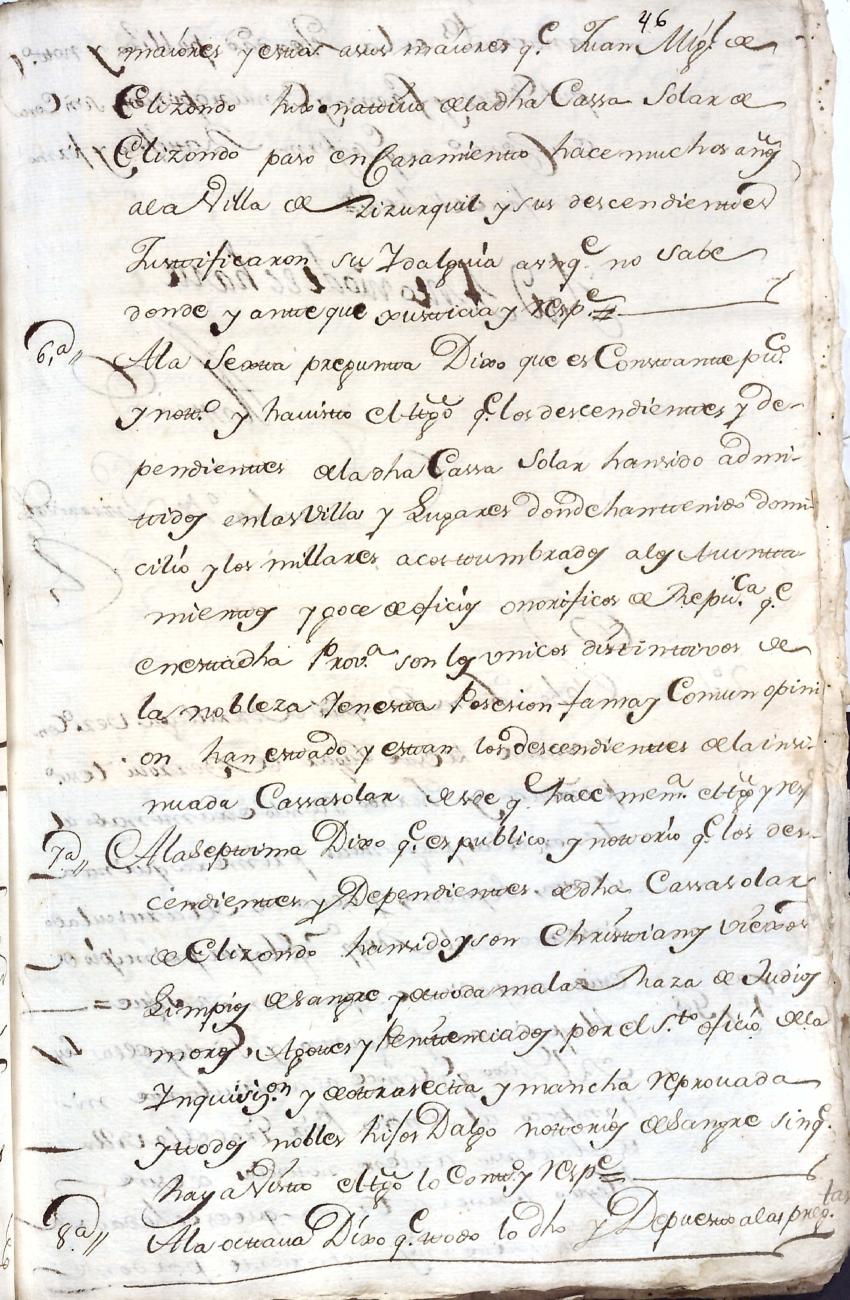 46
maiores y estta asus maiores q.e Juan Mig.l de
Elizondo hixo nattiuo de la dha Cassa Solar de
Elizondo paso en Casamientto hace muchos años
a la Villa de Zizurquil y sus descendienttes
Justtificaron su Idalguia aunq.e no sabe
donde y antte que Justticia y resp.e =
6.a Ala Sextta pregunta Dixo que es Consttantte pu.co
y nott.o y ha vistto el ttgo q.e los descendienttes y de-
pendienttes de la dha Cassa Solar han sido admi-
ttidos en las Villa y Lugares donde han ttenido domi
cilio y los millares acosttumbrados a los Aiuntta
mienttos y goce de oficios onorificos de Repu.ca q.e
en estta dha Prov.a son los vnicos disttinttiuos de
la nobleza Y en estta Posesion fama y Comun opini
on han esttado y esttan los descendienttes de la insi-
nuada Cassa solar desde q.e hace mem.a el ttgo y res
7.a Ala Septtima Dixo q.e es publico, y nottorio q.e los des-
cendienttes y Dependienttes de dha Cassa solar
de Elizondo han sido y son Christtianos Viexos
Limpios de Sangre y de ttoda mala Raza de Judios
moros, Agottes y Penittenciados por el S.to oficio de la
Inquisi.on y de ottra sectta y mancha reprouada
y ttodos nobles hijos Dalgo nottorios de Sangre sin q.e
haya Vistto el ttgo lo Contt.o y resp.e =
8.a Ala octtaua Dixo q.e ttodo lo dho y Depuestto a las preg.tas